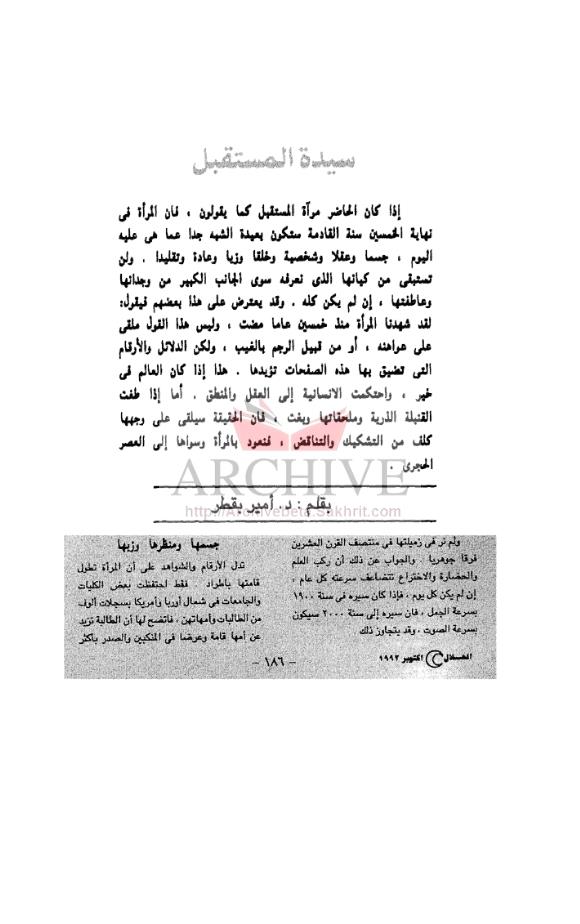 سيدة المستقبل
إذا كان الحاضر مرآة المستقبل كما يقولون ، فان المرأة فى
نهاية الخمسين سنة القادمة ستكون بعيدة الشبه جدا عما هى عليه
اليوم ، جسما وعقلا وشخصية وخلقا وزيا وعادة وتقليدا . ولن
تستبقى من كيانها الذى نعرفه سوى الجانب الكبير من وجدانها
وعاطفتها ، إن لم يكن كله . وقد يعترض على هذا بعضهم فيقول:
لقد شهدنا المرأة منذ خمسين عاما مضت ، وليس هذا القول ملقى
على عواهنه ، أو من قبيل الرجم بالغيب ، ولكن الدلائل والأرقام
التى تضيق بها هذه الصفحات تؤيدها . هذا إذا كان العالم فى
خير ، واحتكمت الانسانية إلى العقل والمنطق . أما إذا طغت
القنبلة الذرية وملحقاتها وبغت ، فان الحقيقة سيلقى على وجهها
كلف من التشكيك والتناقض ، فنعود بالمرأة وسواها إلى العصر
الحجرى .
ARCHIVE
بقلم : د. أمير بقطر
http://Archivebeta.Sakhrit.com
ولم نر فى زميلتها فى منتصف القرن العشرين
فرقا جوهريا . والجواب عن ذلك أن ركب العلم
والحضارة والاختراع تتضاعف سرعته كل عام ،
إن لم يكن كل يوم ، فإذا كان سيره فى سنة ١٩٠٠
بسرعة الجمل ، فان سيره إلى سنة ٢٠٠٠ سيكون
بسرعة الصوت ، وقد يتجاوز ذلك
جسمها ومنظرها وزيها
تدل الأرقام والشواهد على أن المرأة تطول
قامتها باطراد . فقط احتفظت بعض الكليات
والجامعات فى شمال أوربا وأمريكا بسجلات ألوف
من الطالبات وأمهاتهن ، فاتضح لها أن الطالبة تزيد
عن أمها قامة وعرضا فى المنكبين والصدر بأكثر
الهلال أكتوبر ١٩٩٢
- ١٨٦ -